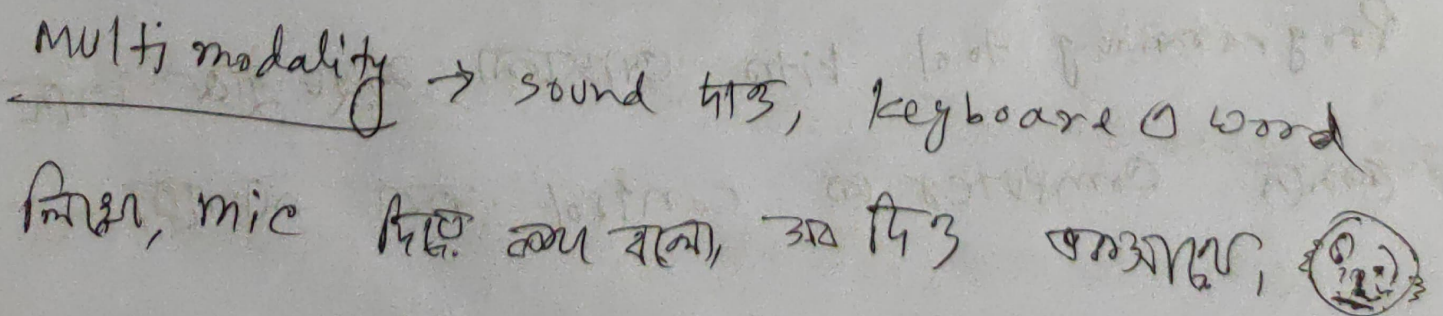 Multi modality → sound দাও, keyboare এ word
লিখো, mic দিয়ে কথা বলো, সব দিও একসাথে,